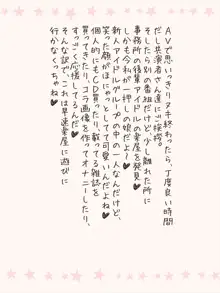 AVで思いっきりヌキ終わったら、丁度良い時間
だし共演者さん達にご挨拶。
そしたら別の番組だけど、少し離れた所に
事務所の後輩アイドルの楽屋を発見♥
しかも今私が一押しの娘だよ～？
新人アイドルグループの中の一人なんだけど、
笑った顔がほにゃっとしてて可愛いんだよね♥
個人的にもCD買ったり、載ってる雑誌を
買ってきたり、コラ画像を作ってオナニーしたり、
すっごく応援してるんだ♥
そんな訳で、これは早速楽屋に遊びに
行かなくっちゃね♥